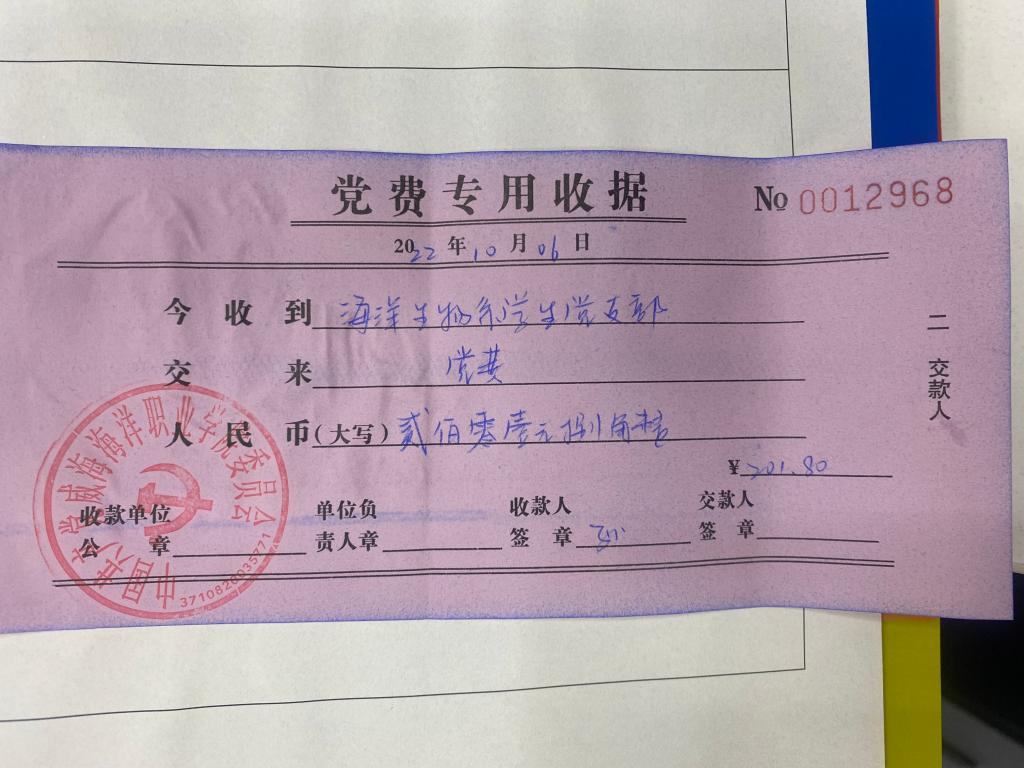 党费专用收据
No 0012968
2022年10月06日
今收到 海洋生物系学生党支部
交来 党费
人民币(大写) 贰佰零壹元捌角整
¥201.80
收款单位公章
单位负责人章
收款人签章
交款人签章
二 交款人
中国共产党威海海洋职业学院委员会